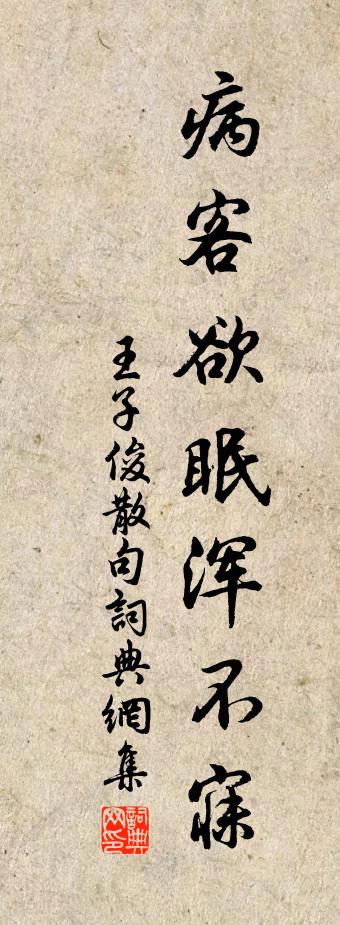 病客欲眠浑不寐
王子俊散句詞典網集
詞典網印